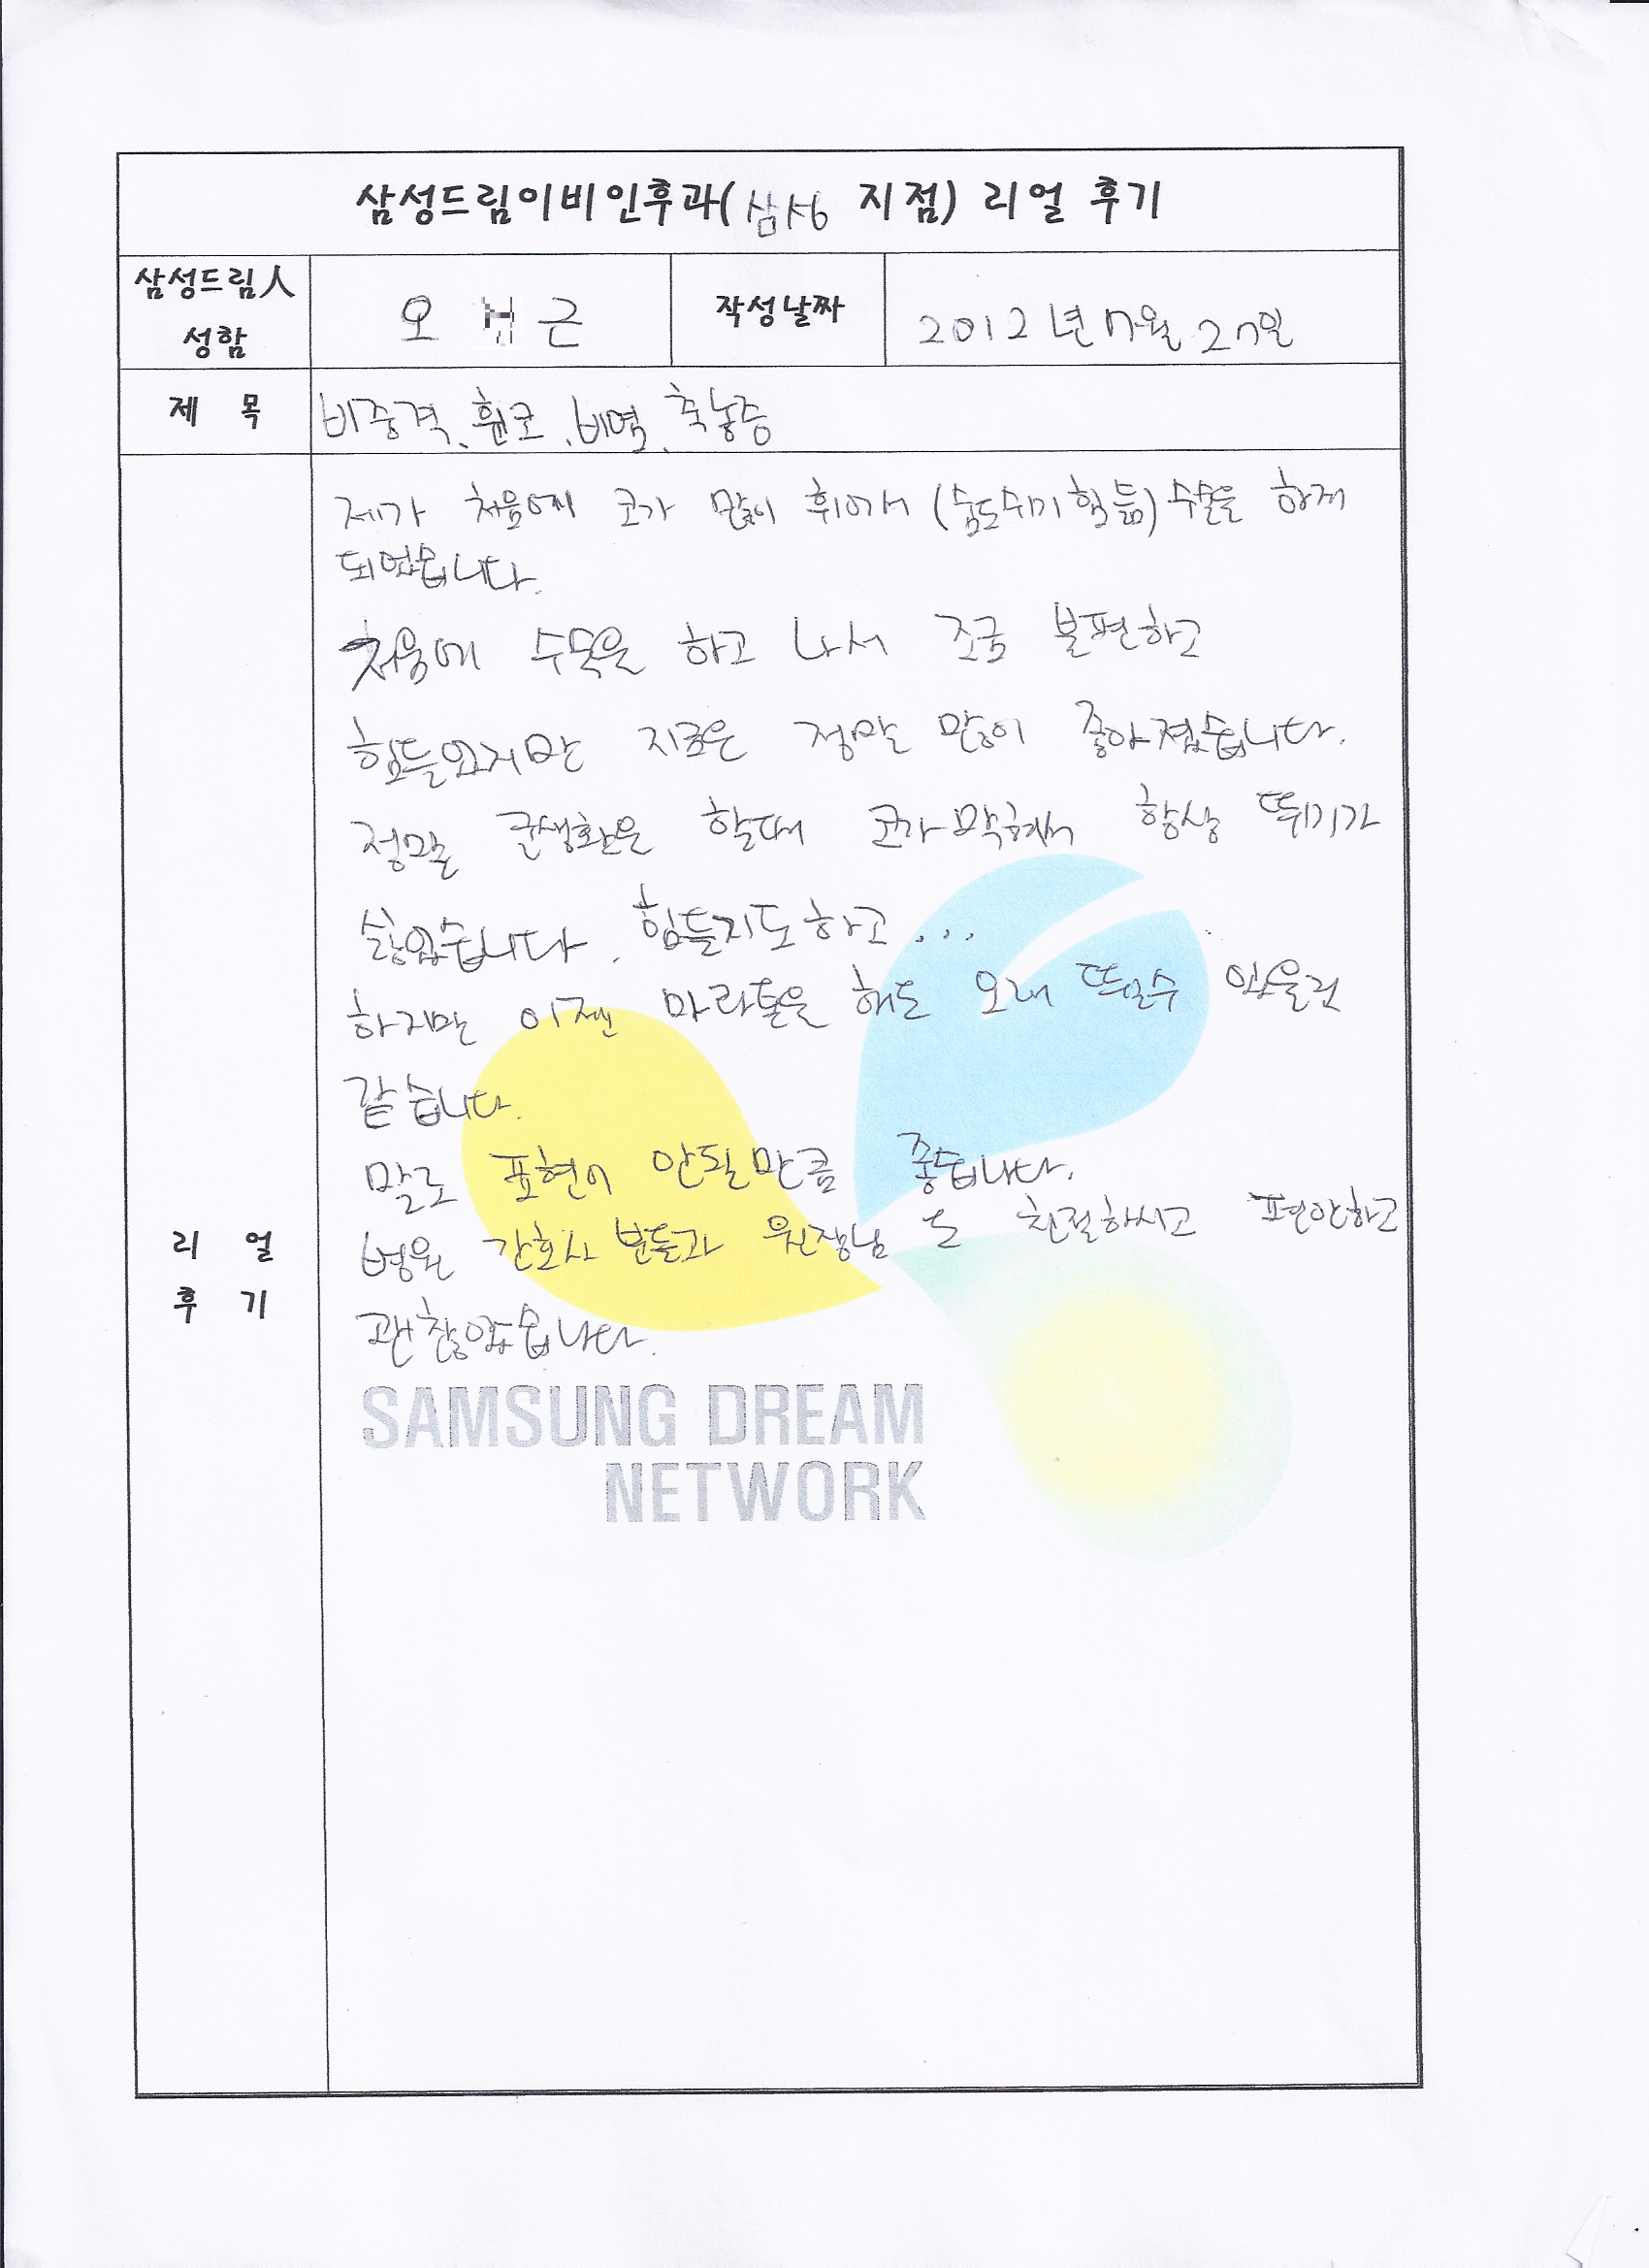 삼성드림이비인후과(삼성 지점) 리얼 후기
삼성드림人
성함
오 근
작성날짜
2012년 7월 27일
제 목
비중격, 휜코, 비염, 축농증
제가 처음에 코가 많이 휘어서 (숨도쉬기 힘듦) 수술을 하게
되었읍니다.
처음에 수술을 하고 나서 조금 불편하고
힘들었지만 지금은 정말 많이 좋아졌습니다.
정말 군생활을 할때 코가막혀서 항상 뛰기가
싫었습니다. 힘들지도하고...
하지만 이젠 마라톤을 해도 오래 뛸수 있을것
같습니다.
말로 표현이 안될만큼 좋습니다.
병원 간호사 분들과 원장님 도 친절하시고 편안하고
괜찮았읍니다.
리 얼
후 기
SAMSUNG DREAM
NETWORK